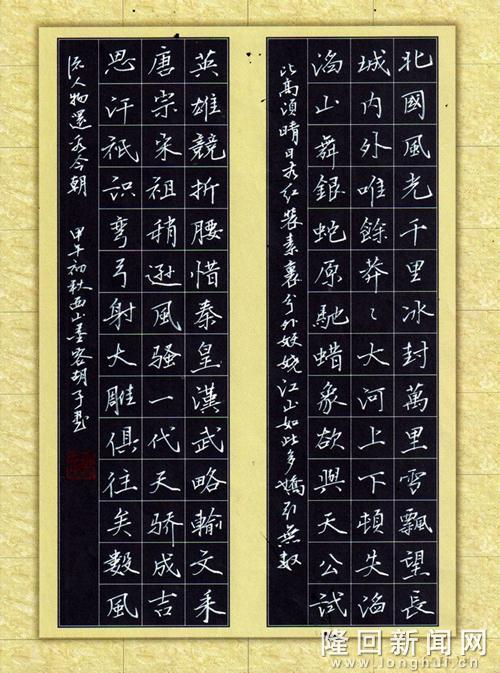 北國風光千里冰封萬里雪飄望長
城内外唯餘莽〻大河上下頓失滔
滔山舞銀蛇原馳蜡象欲與天公試
比高須晴日看红装素裹分外妖娆江山如此多嬌引無数
英雄競折腰惜秦皇漢武略輸文采
唐宗宋祖稍遜風骚一代天骄成吉
思汗祇识弯弓射大雕俱往矣數風
流人物還看今朝 甲午初秋西山墨客胡子書
隆回新闻网
www.longhui.ccoo.cn